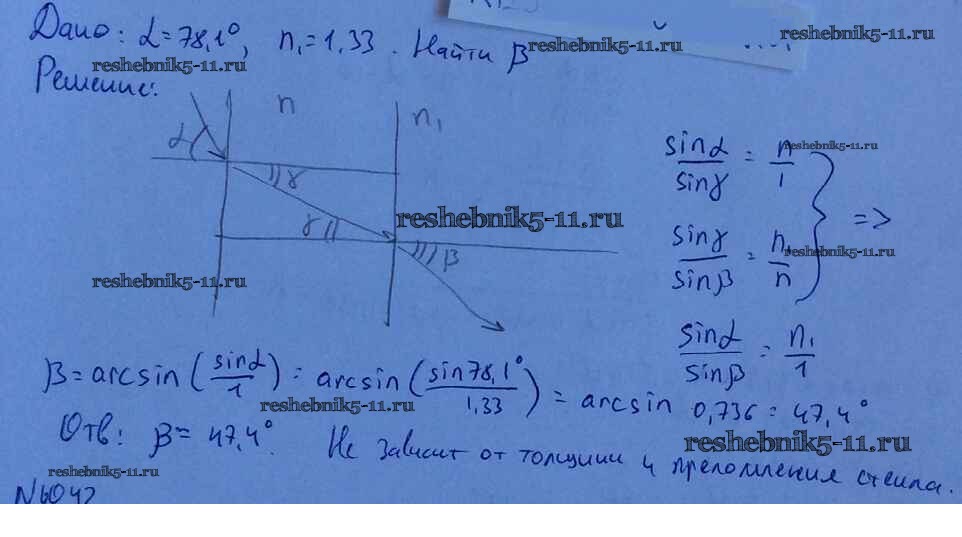 Дано: α = 78,1°, n₁ = 1,33. Найти β
reshebnik5-11.ru
reshebnik5-11.ru
Решение:
n
n₁
α
γ
γ
β
reshebnik5-11.ru
reshebnik5-11.ru
reshebnik5-11.ru
reshebnik5-11.ru
sinα/sinγ = n/1
sinγ/sinβ = n₁/n
=>
sinα/sinβ = n₁/1
β = arcsin(sinα/1) = arcsin(sin78,1°/1,33) = arcsin 0,736 = 47,4°
reshebnik5-11.ru
Отв: β = 47,4°. Не зависит от толщини и преломления стекла.
reshebnik5-11.ru
reshebnik5-11.ru
N6042